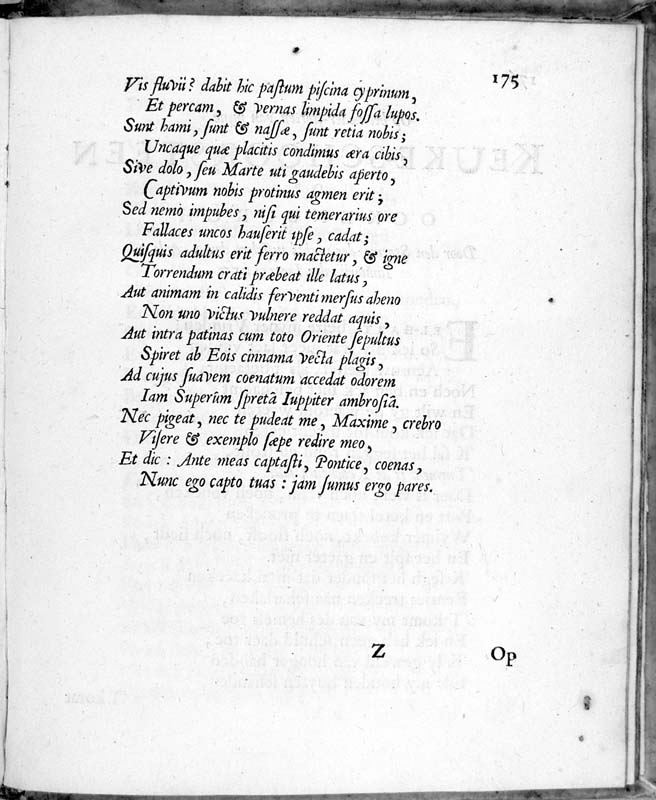 175
Vis fluvii? dabit hic paſtum piſcina cyprinum,
Et percam, & vernas limpida foſſa lupos.
Sunt hami, ſunt & naſſæ, ſunt retia nobis;
Uncaque quæ placitis condimus æra cibis,
Sive dolo, ſeu Marte uti gaudebis aperto,
Captivum nobis protinus agmen erit;
Sed nemò impubes, niſi qui temerarius ore
Fallaces uncos hauſerit ipſe, cadat;
Quiſquis adultus erit ferro mactetur, & igne
Torrendum crati præbeat ille latus,
Aut animam in calidis ferventi merſus aheno
Non uno victus vulnere reddat aquis,
Aut intra patinas cum toto Oriente ſepultus
Spiret ab Eois cinnama vecta plagis,
Ad cujus ſuavem coenatum accedat odorem
Iam Superûm ſpretâ Iuppiter ambroſiâ.
Nec pigeat, nec te pudeat me, Maxime, crebro
Viſere & exemplo ſæpe redire meo,
Et dic: Ante meas captaſti, Pontice, coenas,
Nunc ego capto tuas: jam ſumus ergo pares.
Z
Op